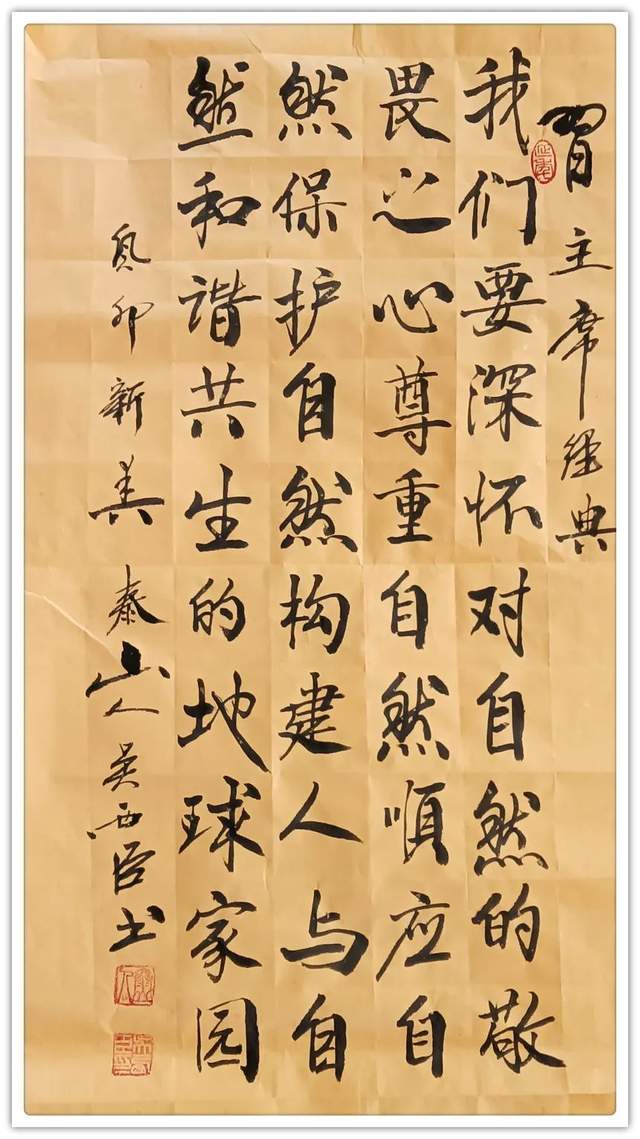 習主席经典
我们要深怀对自然的敬
畏之心尊重自然順应自
然保护自然构建人与自
然和谐共生的地球家园
癸卯新 泰山人吴西臣书